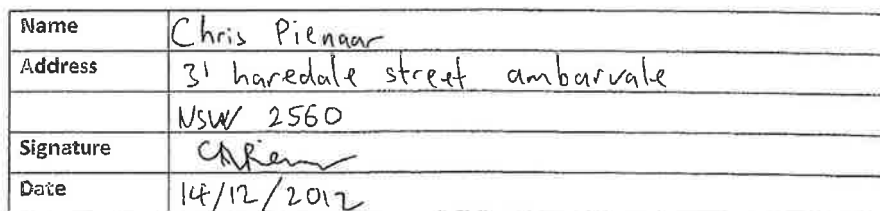 Name Chris Pienaar
Address 31 haredale street ambarvale
NSW 2560
Signature
Date 14/12/2012